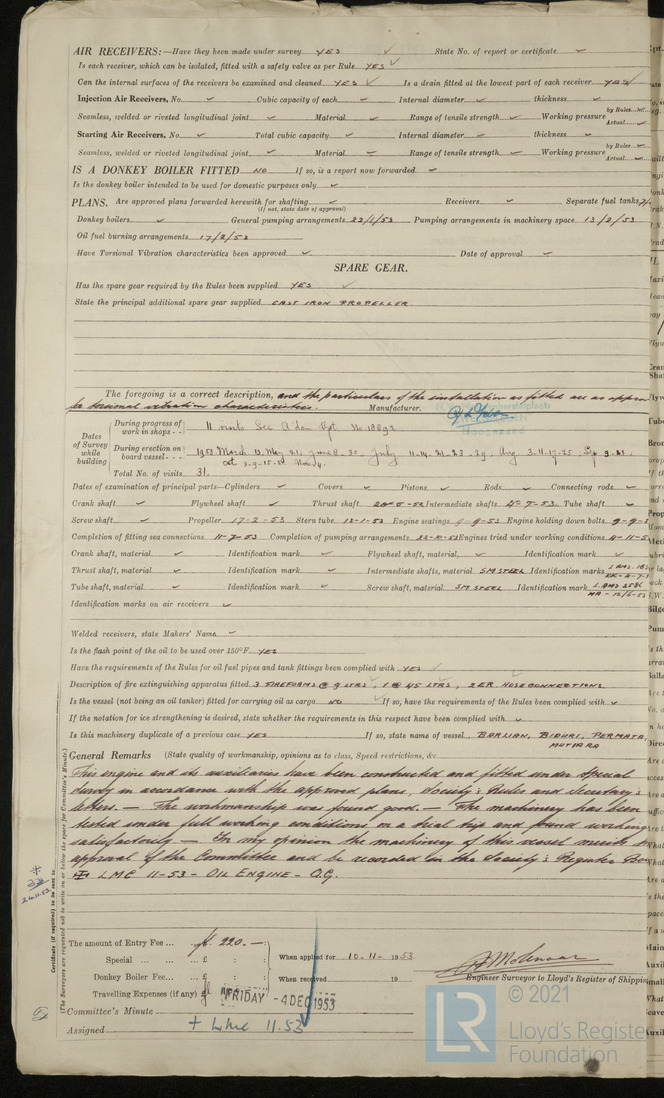 AIR RECEIVERS:—Have they been made under survey YES ✓ State No. of report or certificate ✓
Is each receiver, which can be isolated, fitted with a safety valve as per Rule YES ✓
Can the internal surfaces of the receivers be examined and cleaned YES ✓ Is a drain fitted at the lowest part of each receiver YES ✓
Injection Air Receivers, No. ✓ Cubic capacity of each ✓ Internal diameter ✓ thickness ✓
Seamless, welded or riveted longitudinal joint ✓ Material ✓ Range of tensile strength ✓ Working pressure by Rules Actual
Starting Air Receivers, No. ✓ Total cubic capacity ✓ Internal diameter ✓ thickness ✓
Seamless, welded or riveted longitudinal joint ✓ Material ✓ Range of tensile strength ✓ Working pressure by Rules Actual
IS A DONKEY BOILER FITTED NO If so, is a report now forwarded ✓
Is the donkey boiler intended to be used for domestic purposes only ✓
PLANS. Are approved plans forwarded herewith for shafting ✓ Receivers ✓ Separate fuel tanks
(If not, state date of approval)
Donkey boilers ✓ General pumping arrangements 22/1/53 Pumping arrangements in machinery space 13/2/53
Oil fuel burning arrangements 17/2/53
Have Torsional Vibration characteristics been approved ✓ Date of approval ✓
SPARE GEAR.
Has the spare gear required by the Rules been supplied YES ✓
State the principal additional spare gear supplied CAST IRON PROPELLER
The foregoing is a correct description, and the particulars of the installation as fitted are as approv
for torsional vibration characteristics. Manufacturer.
Dates of Survey while building
During progress of work in shops - - 11 visits See A'dam Rpt. No.
During erection on board vessel - - - 1953 March 13, May 21, June 8-30, July 11-14-21-23-29, Aug. 3-11-17-25, Sep. 9-23,
Oct. 3-9-15-22 Nov. 4.
Total No. of visits 31.
Dates of examination of principal parts—Cylinders ✓ Covers ✓ Pistons ✓ Rods ✓ Connecting rods ✓
Crank shaft ✓ Flywheel shaft ✓ Thrust shaft Intermediate shafts 4-7-53. Tube shaft ✓
Screw shaft ✓ Propeller 17-2-53 Stern tube 12-1-53 Engine seatings 9-9-53 Engine holding down bolts 9-9-5
Completion of fitting sea connections 11-7-53 Completion of pumping arrangements 22-10-53 Engines tried under working conditions 4-11-5
Crank shaft, material ✓ Identification mark ✓ Flywheel shaft, material, ✓ Identification mark ✓
Thrust shaft, material ✓ Identification mark ✓ Intermediate shafts, material SM STEEL Identification marks
Tube shaft, material ✓ Identification mark ✓ Screw shaft, material SM STEEL Identification mark
Identification marks on air receivers ✓
Welded receivers, state Makers' Name ✓
Is the flash point of the oil to be used over 150°F. YES
Have the requirements of the Rules for oil fuel pipes and tank fittings been complied with YES ✓
Description of fire extinguishing apparatus fitted 3 FIREFOAMS @ 9 LTRS, 1 @ 45 LTRS, 2 ER HOSECONNECTIONS
Is the vessel (not being an oil tanker) fitted for carrying oil as cargo NO If so, have the requirements of the Rules been complied with ✓
If the notation for ice strengthening is desired, state whether the requirements in this respect have been complied with ✓
Is this machinery duplicate of a previous case YES If so, state name of vessel BORLIAN, BIDURI, PERMATA,
MUTIARA
General Remarks (State quality of workmanship, opinions as to class, Speed restrictions, &c.
This engine and its auxiliaries have been constructed and fitted under Special
Survey in accordance with the approved plans, Society's Rules and Secretary's
letters. — The workmanship was found good. — The machinery has been
tested under full working conditions on a trial trip and found working
satisfactorily — In my opinion the machinery of this vessel merits
approval of the Committee and be recorded in the Society's Register Boo
LMC 11-53 - OIL ENGINE - O.G.
Certificate (if required) to be sent to
(The Surveyors are requested not to write on or below the space for Committee's Minute.)
24.11.53
The amount of Entry Fee ... fl. 220.—
Special ... ... ... £
Donkey Boiler Fee... £
Travelling Expenses (if any)
When applied for 10-11- 1953
When received 19
Engineer Surveyor to Lloyd's Register of Shippin
Committee's Minute FRIDAY - 4 DEC 1953
Assigned + LMC 11.53
LR
© 2021
Lloyd's Register
Foundation